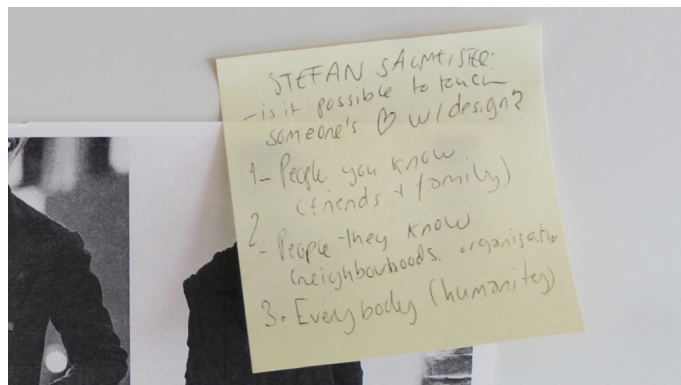 STEFAN SAGMEISTER:
- is it possible to touch
someone's ♡ w/ design?
1- People you know
(friends + family)
2
- People they know
(neighbourhoods, organisatio
3. Everybody (humanity)